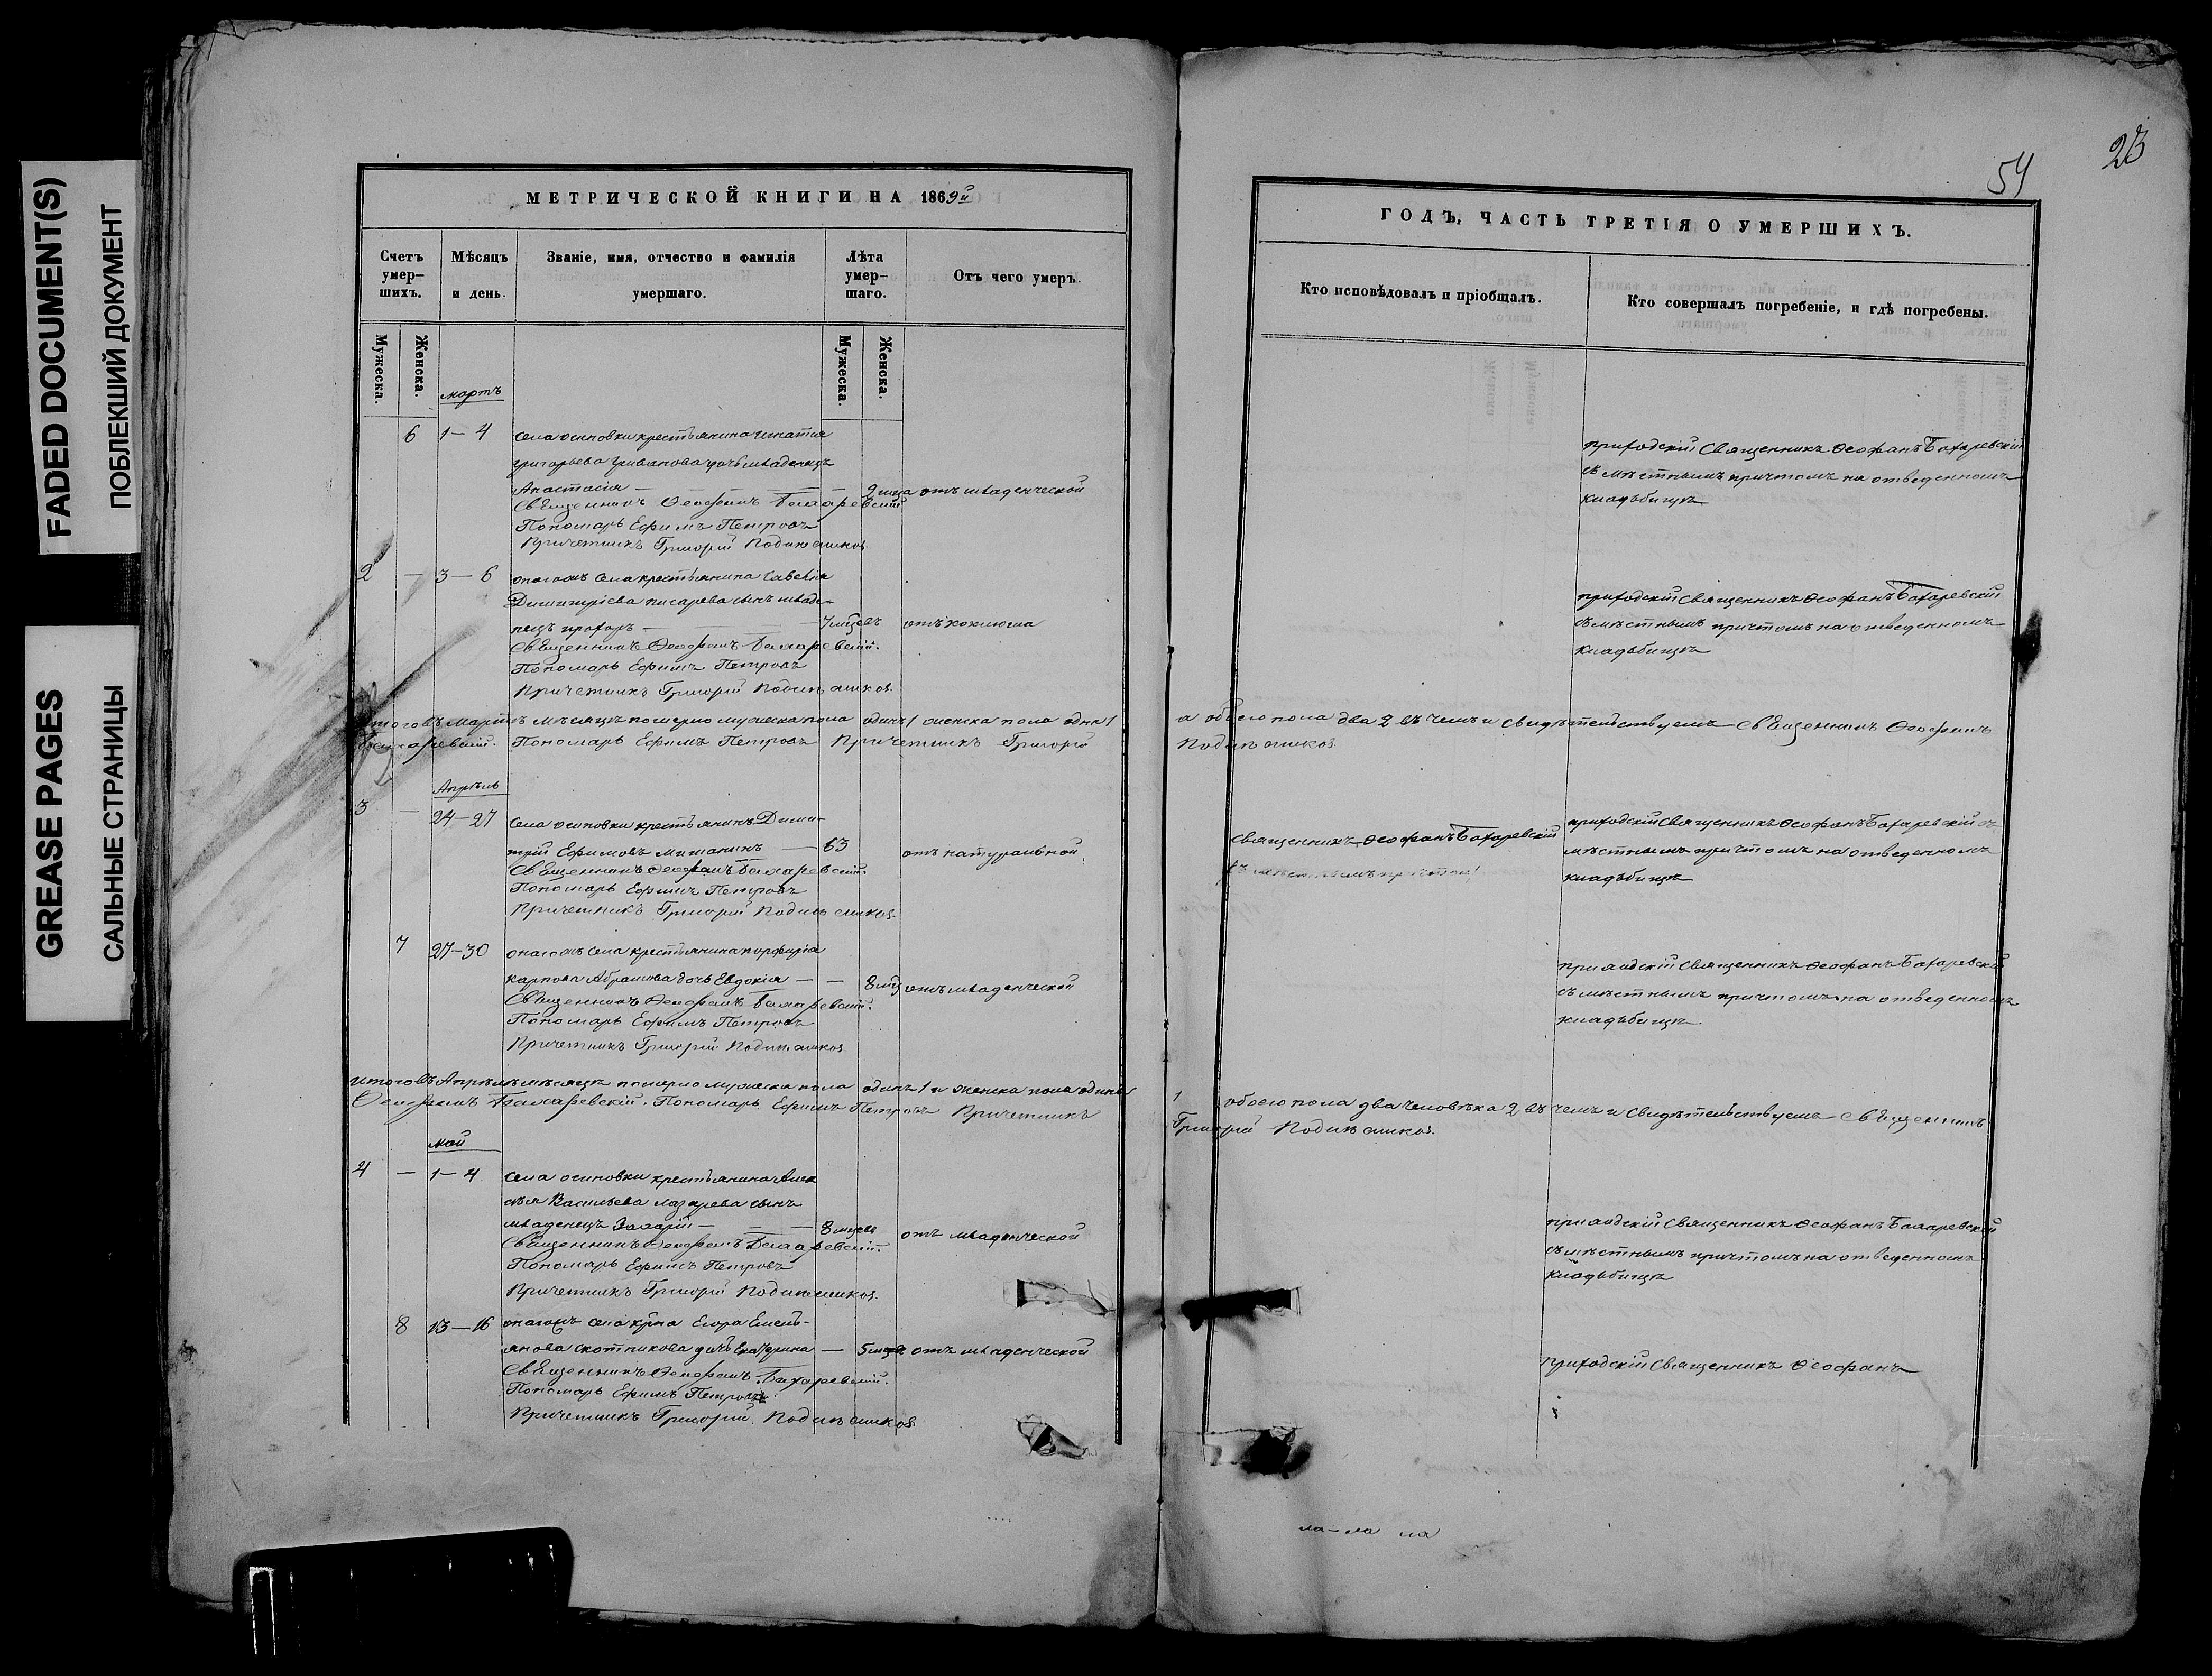 FADED DOCUMENT(S)
ПОБЛЕКШИЙ ДОКУМЕНТ
GREASE PAGES
САЛЬНЫЕ СТРАНИЦЫ
МЕТРИЧЕСКОЙ КНИГИ НА 1869й
Счетъ умер-шихъ.
Мѣсяцъ и день.
Званіе, имя, отчество и фамилія умершаго.
Лѣта умер-шаго.
Отъ чего умеръ.
Мужеска.
Женска.
Мужеска.
Женска.
мартъ
6 1–4 села осиновки крестьянина
григорьева дочь младенецъ
Анастасія — — — — отъ младенческой
Священникъ Ѳеофанъ Бахаревскій
Пономарь Ефимъ Петровъ
Причетникъ Григорій
2 – 3–6 онагожъ села крестьянина Савелія
Димитріева писарева сынъ младе-
нецъ — 7 мцевъ отъ коклюша
Священникъ Ѳеофанъ Бахаревскій.
Пономарь Ефимъ Петровъ
Причетникъ Григорій
итого въ мартѣ мѣсяцѣ померло мужеска пола одинъ 1 женска пола одна 1
Бахаревскій. Пономарь Ефимъ Петровъ Причетникъ Григорій
Апрѣль
3 – 24–27 села осиновки крестьянинъ Дими-
трій Ефимовъ — 63 отъ натуральной
Священникъ Ѳеофанъ Бахаревскій.
Пономарь Ефимъ Петровъ
Причетникъ Григорій
7 27–30 онагожъ села крестьянина порфирія
карпова Абрамова дочь Евдокія — — 8 мцъ отъ младенческой
Священникъ Ѳеофанъ Бахаревскій.
Пономарь Ефимъ Петровъ
Причетникъ Григорій
итого въ Апрѣлѣ мѣсяцѣ померло мужеска пола одинъ 1 и женска пола одна
Ѳеофанъ Бахаревскій. Пономарь Ефимъ Петровъ Причетникъ
май
4 – 1–4 села осиновки крестьянина Алек
сѣя Васильева лазарева сынъ
младенецъ Захарій — — — 8 мцевъ отъ младенческой
Священникъ Ѳеофанъ Бахаревскій.
Пономарь Ефимъ Петровъ
Причетникъ Григорій
8 13–16 онагожъ села крна Егора Емель-
янова скотникова дочь Екатерина — 5 отъ младенческой
Священникъ Ѳеофанъ Бахаревскій.
Пономарь Ефимъ Петровъ
Причетникъ Григорій
54
23
ГОДЪ, ЧАСТЬ ТРЕТІЯ О УМЕРШИХЪ.
Кто исповѣдовалъ и пріобщалъ.
Кто совершалъ погребеніе, и гдѣ погребены.
приходскій Священникъ Ѳеофанъ Бахаревскій
съ мѣстнымъ причтомъ на отведенномъ
кладьбищѣ
приходскій Священникъ Ѳеофанъ Бахаревскій
съ мѣстнымъ причтомъ на отведенномъ
кладьбищѣ
а обоего пола два 2 въ чемъ и свидѣтельствуемъ Священникъ Ѳеофанъ
священникъ Ѳеофанъ Бахаревскій
приходскій Священникъ Ѳеофанъ Бахаревскій съ
мѣстнымъ причтомъ на отведенномъ
кладьбищѣ
приходскій Священникъ Ѳеофанъ Бахаревскій
съ мѣстнымъ причтомъ на отведенномъ
кладьбищѣ.
1 обоего пола два человѣка 2 въ чемъ и Свидѣтельствуемъ Священникъ
Григорій
приходскій Священникъ Ѳеофанъ Бахаревскій
съ мѣстнымъ причтомъ на отведенномъ
кладьбищѣ
приходскій Священникъ Ѳеофанъ